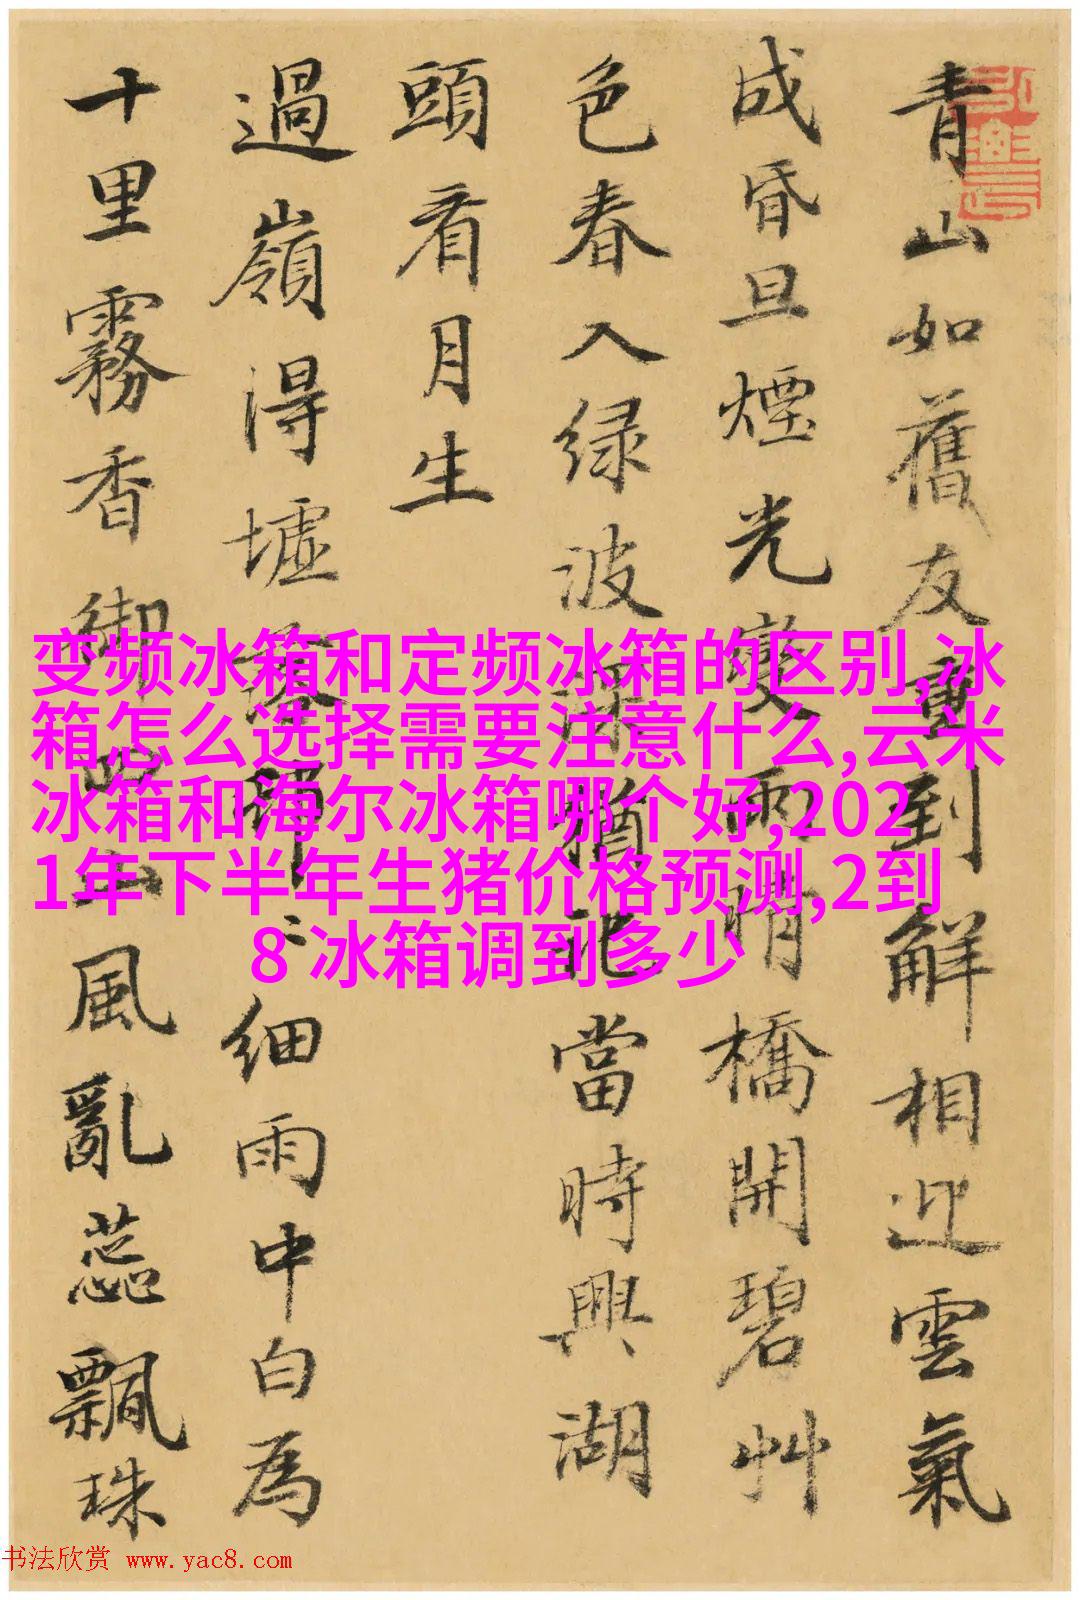 青山如舊友重到解相迎雲氣
成昏旦煙光變雨晴橋開碧艸
色春入绿波深猶記當時興湖
頭看月生
過嶺得墟細雨中白為
十里霧香御山風亂蕊飄珠
变频冰箱和定频冰箱的区别,冰
箱怎么选择需要注意什么,云米
冰箱和海尔冰箱哪个好,202
1年下半年生猪价格预测,2到
8 冰箱调到多少
书法欣赏 www.yac8.com